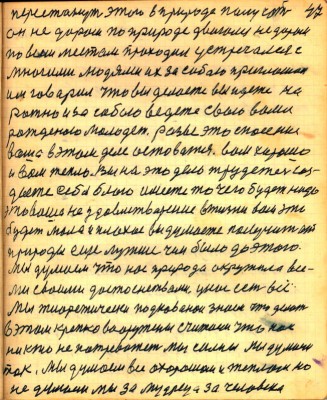 перестанут этого в природе получать 47
он не дорога по природе двигали не дарил
по всем местам проходил встречался с
многими людями их за собою приглашал
им говорил что вы делаете вы идете на
ратно и за собою ведете свою вами
рожденого молодеж. разве это спасение
ваше в этом деле остоватся. вам хорошо
и вам тепло. вы на это дело трудетеся соз-
даете себе благо имеете то чего будет надо
это ваше не удовлетворение в жизни вам это
будет мало и плохое вы думаете получить от
природы еще лучше чем было до этого.
мы думаем что нас природа окружила все-
ми своими достоенствами, у нас есть всё.
мы теоретически подкованы знаем это дело
в этом крепко вооружены считаем что нас
никто не потревожет мы сильны мы думаем
так. мы думаем все о хорошем и теплом но
не думаем мы за мудреца за человека